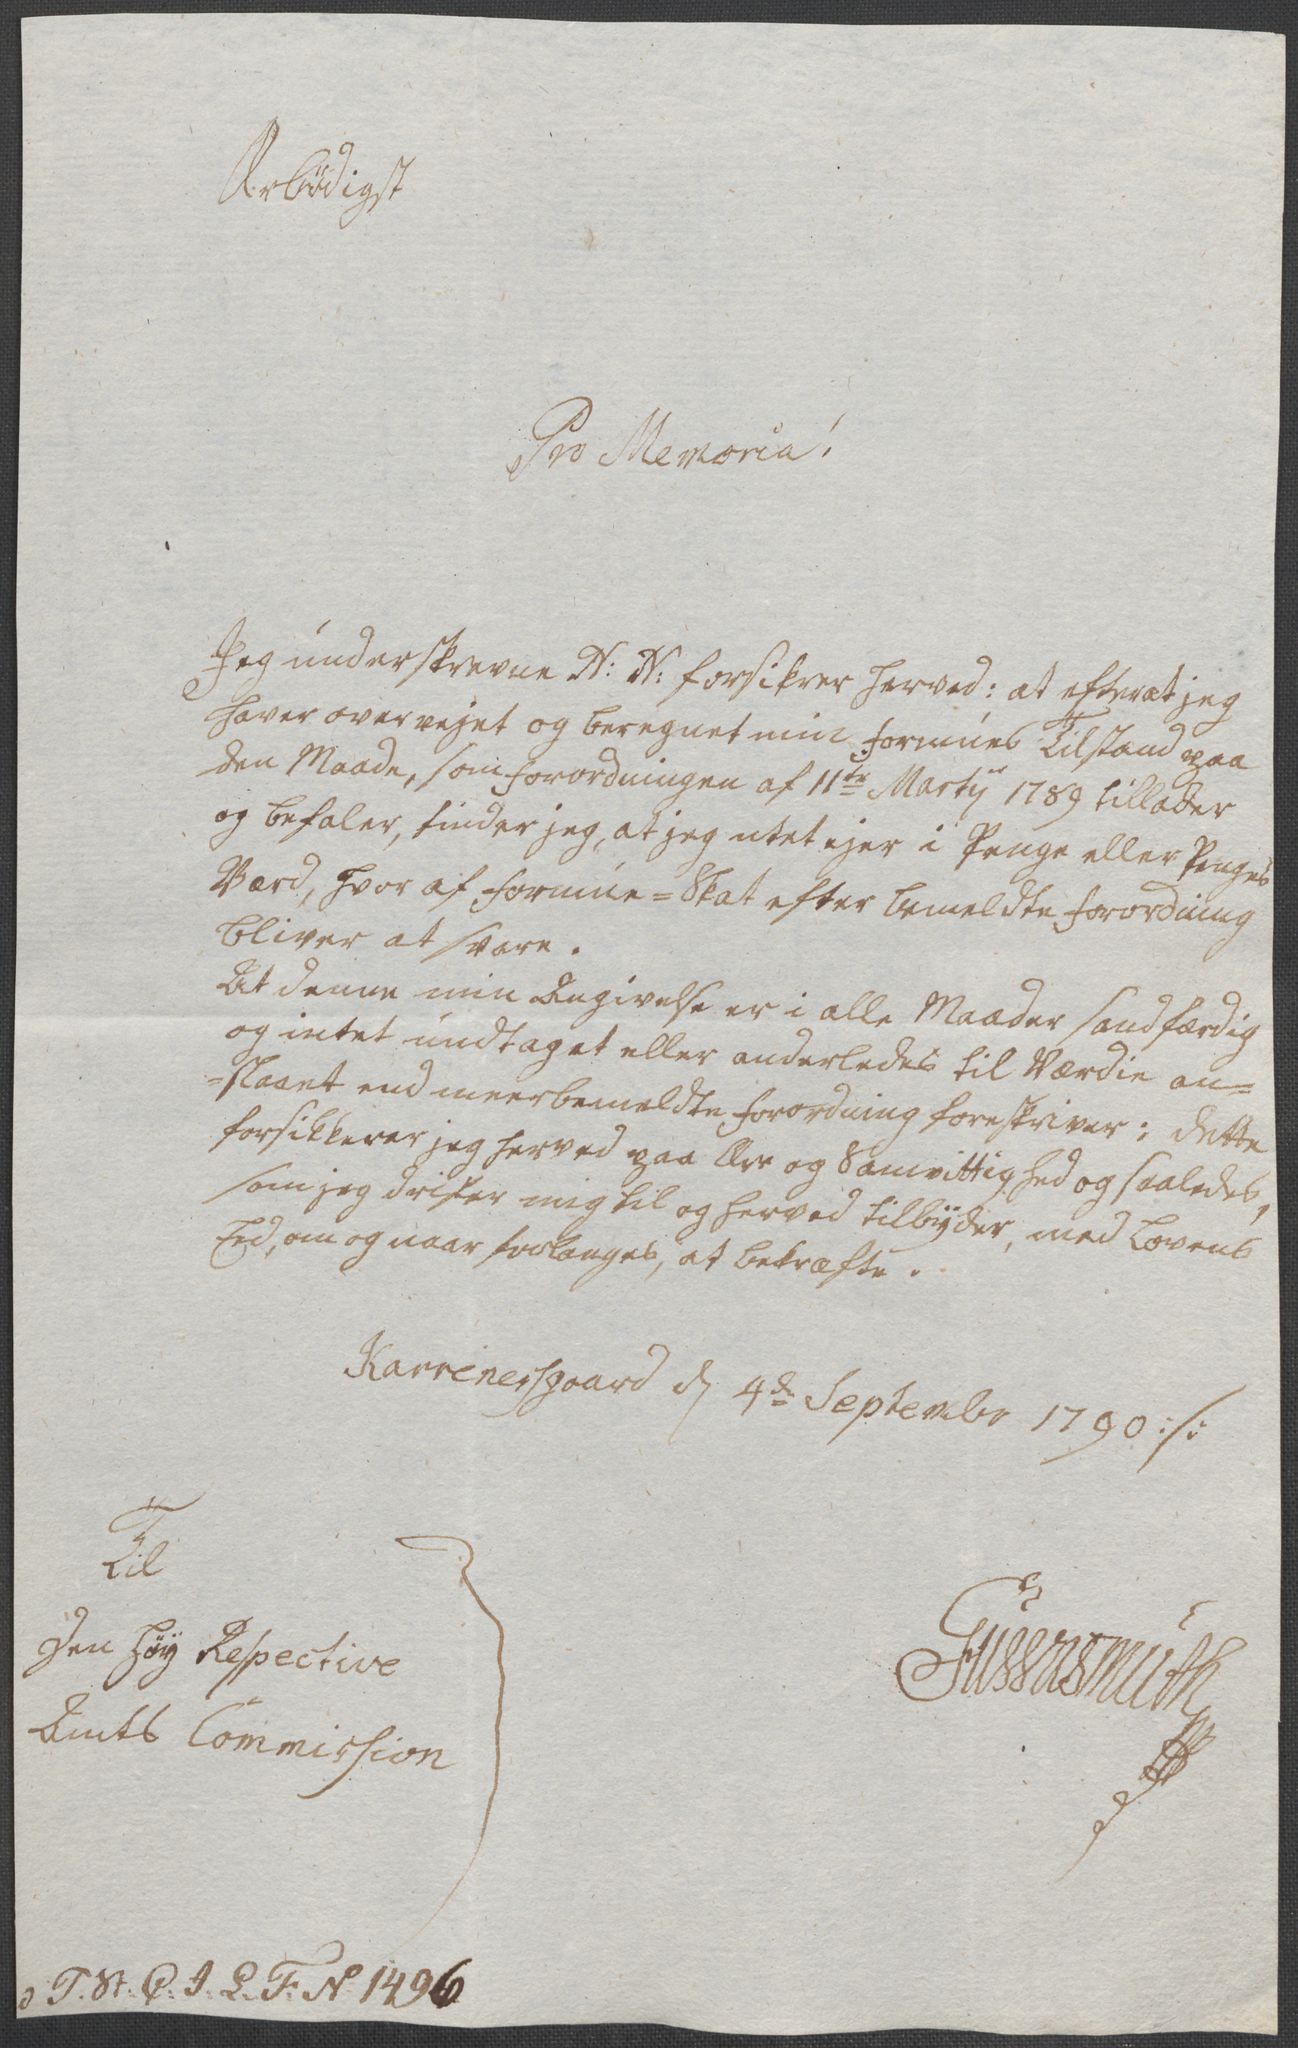 Ærbödigst
Pro Memoria!
Jeg underskrevne N: N: forsikrer herved: at efterat jeg
haver overvejet og beregnet min Formues Tilstand paa
den Maade, som Forordningen af 11te Martij 1789 tillader
og befaler, finder jeg, at jeg intet ejer i Penge eller Penges
Værd, hvor af Formue=Skat efter bemeldte Forordning
bliver at svare.
At denne min Angivelse er i alle Maader sandfærdig
og intet undtaget eller anderledes til Værdie an=
=slaaet end meerbemeldte Forordning foreskriver: dette
forsikkerer jeg herved paa Ære og Samvittighed og saaledes,
som jeg drister mig til og herved tilbÿder, med Lovens
Eed, om og naar forlanges, at bekræfte.
d 4de September 1790 :/:
Til
Den Höy Respective
Amts Commission
T. St. P. J. L. F. No 1496